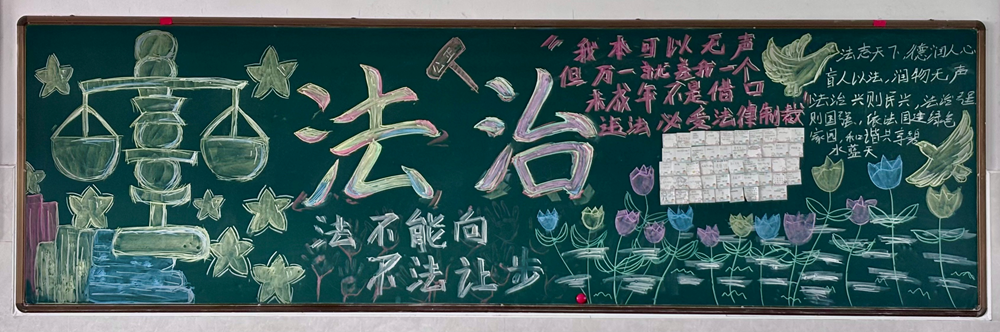 法治
法不能向
不法让步
"我本可以无声
但万一就差我一个
未成年不是借口
违法必受法律制裁"
法态天下,德润人心
育人以法,润物无声
法治兴则民兴,法治强
则国强,依法国建绿色
家园,和谐共享碧
水蓝天